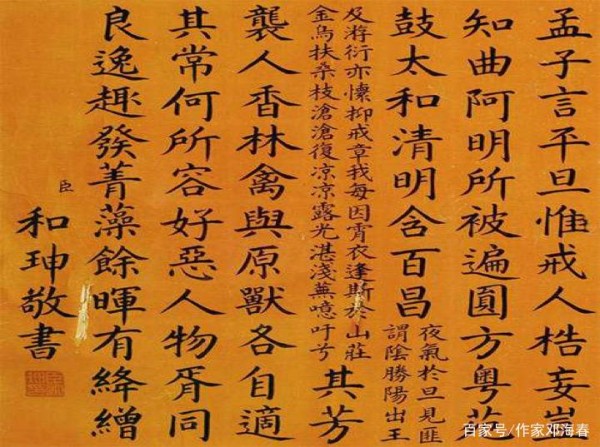 孟子言平旦惟戒人梏妄豈
知曲阿明所被遍圓方粵若
鼓太和清明含百昌
夜氣於旦見匪
謂陰勝陽出王
及游衍亦懍抑戒章我每因霄衣逢斯於山莊
金烏扶桑枝滄滄復凉凉露光湛淺蕪噫吁兮
其芳
襲人香林禽與原獸各自適
其常何所容好惡人物胥同
良逸趣發菁藻餘暉有絳繒
臣
和珅敬書
百家号/作家邓海春